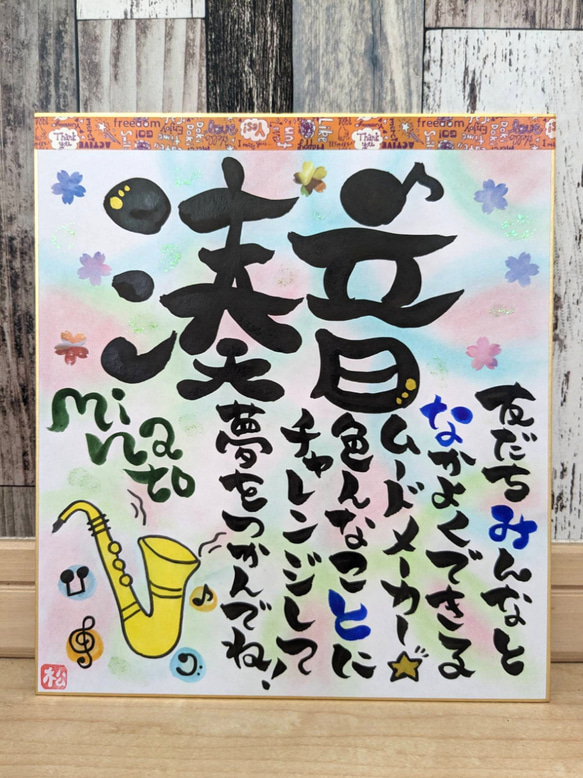 freedom
Thank you
Yes!
fun
freedom
Thank you
湊音
友だちみんなと
なかよくできる
ムードメーカー☆
色んなことに
チャレンジして
夢をつかんでね!
Mi
na
to
松